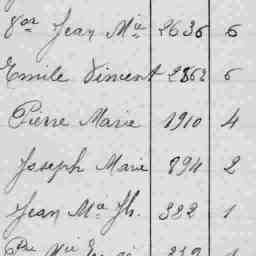 Vor Jean Mie 2636 6
Emile Vincent 2862 6
Pierre Marie 1910 4
Joseph Marie 894 2
Jean Ma Jh. 382 1